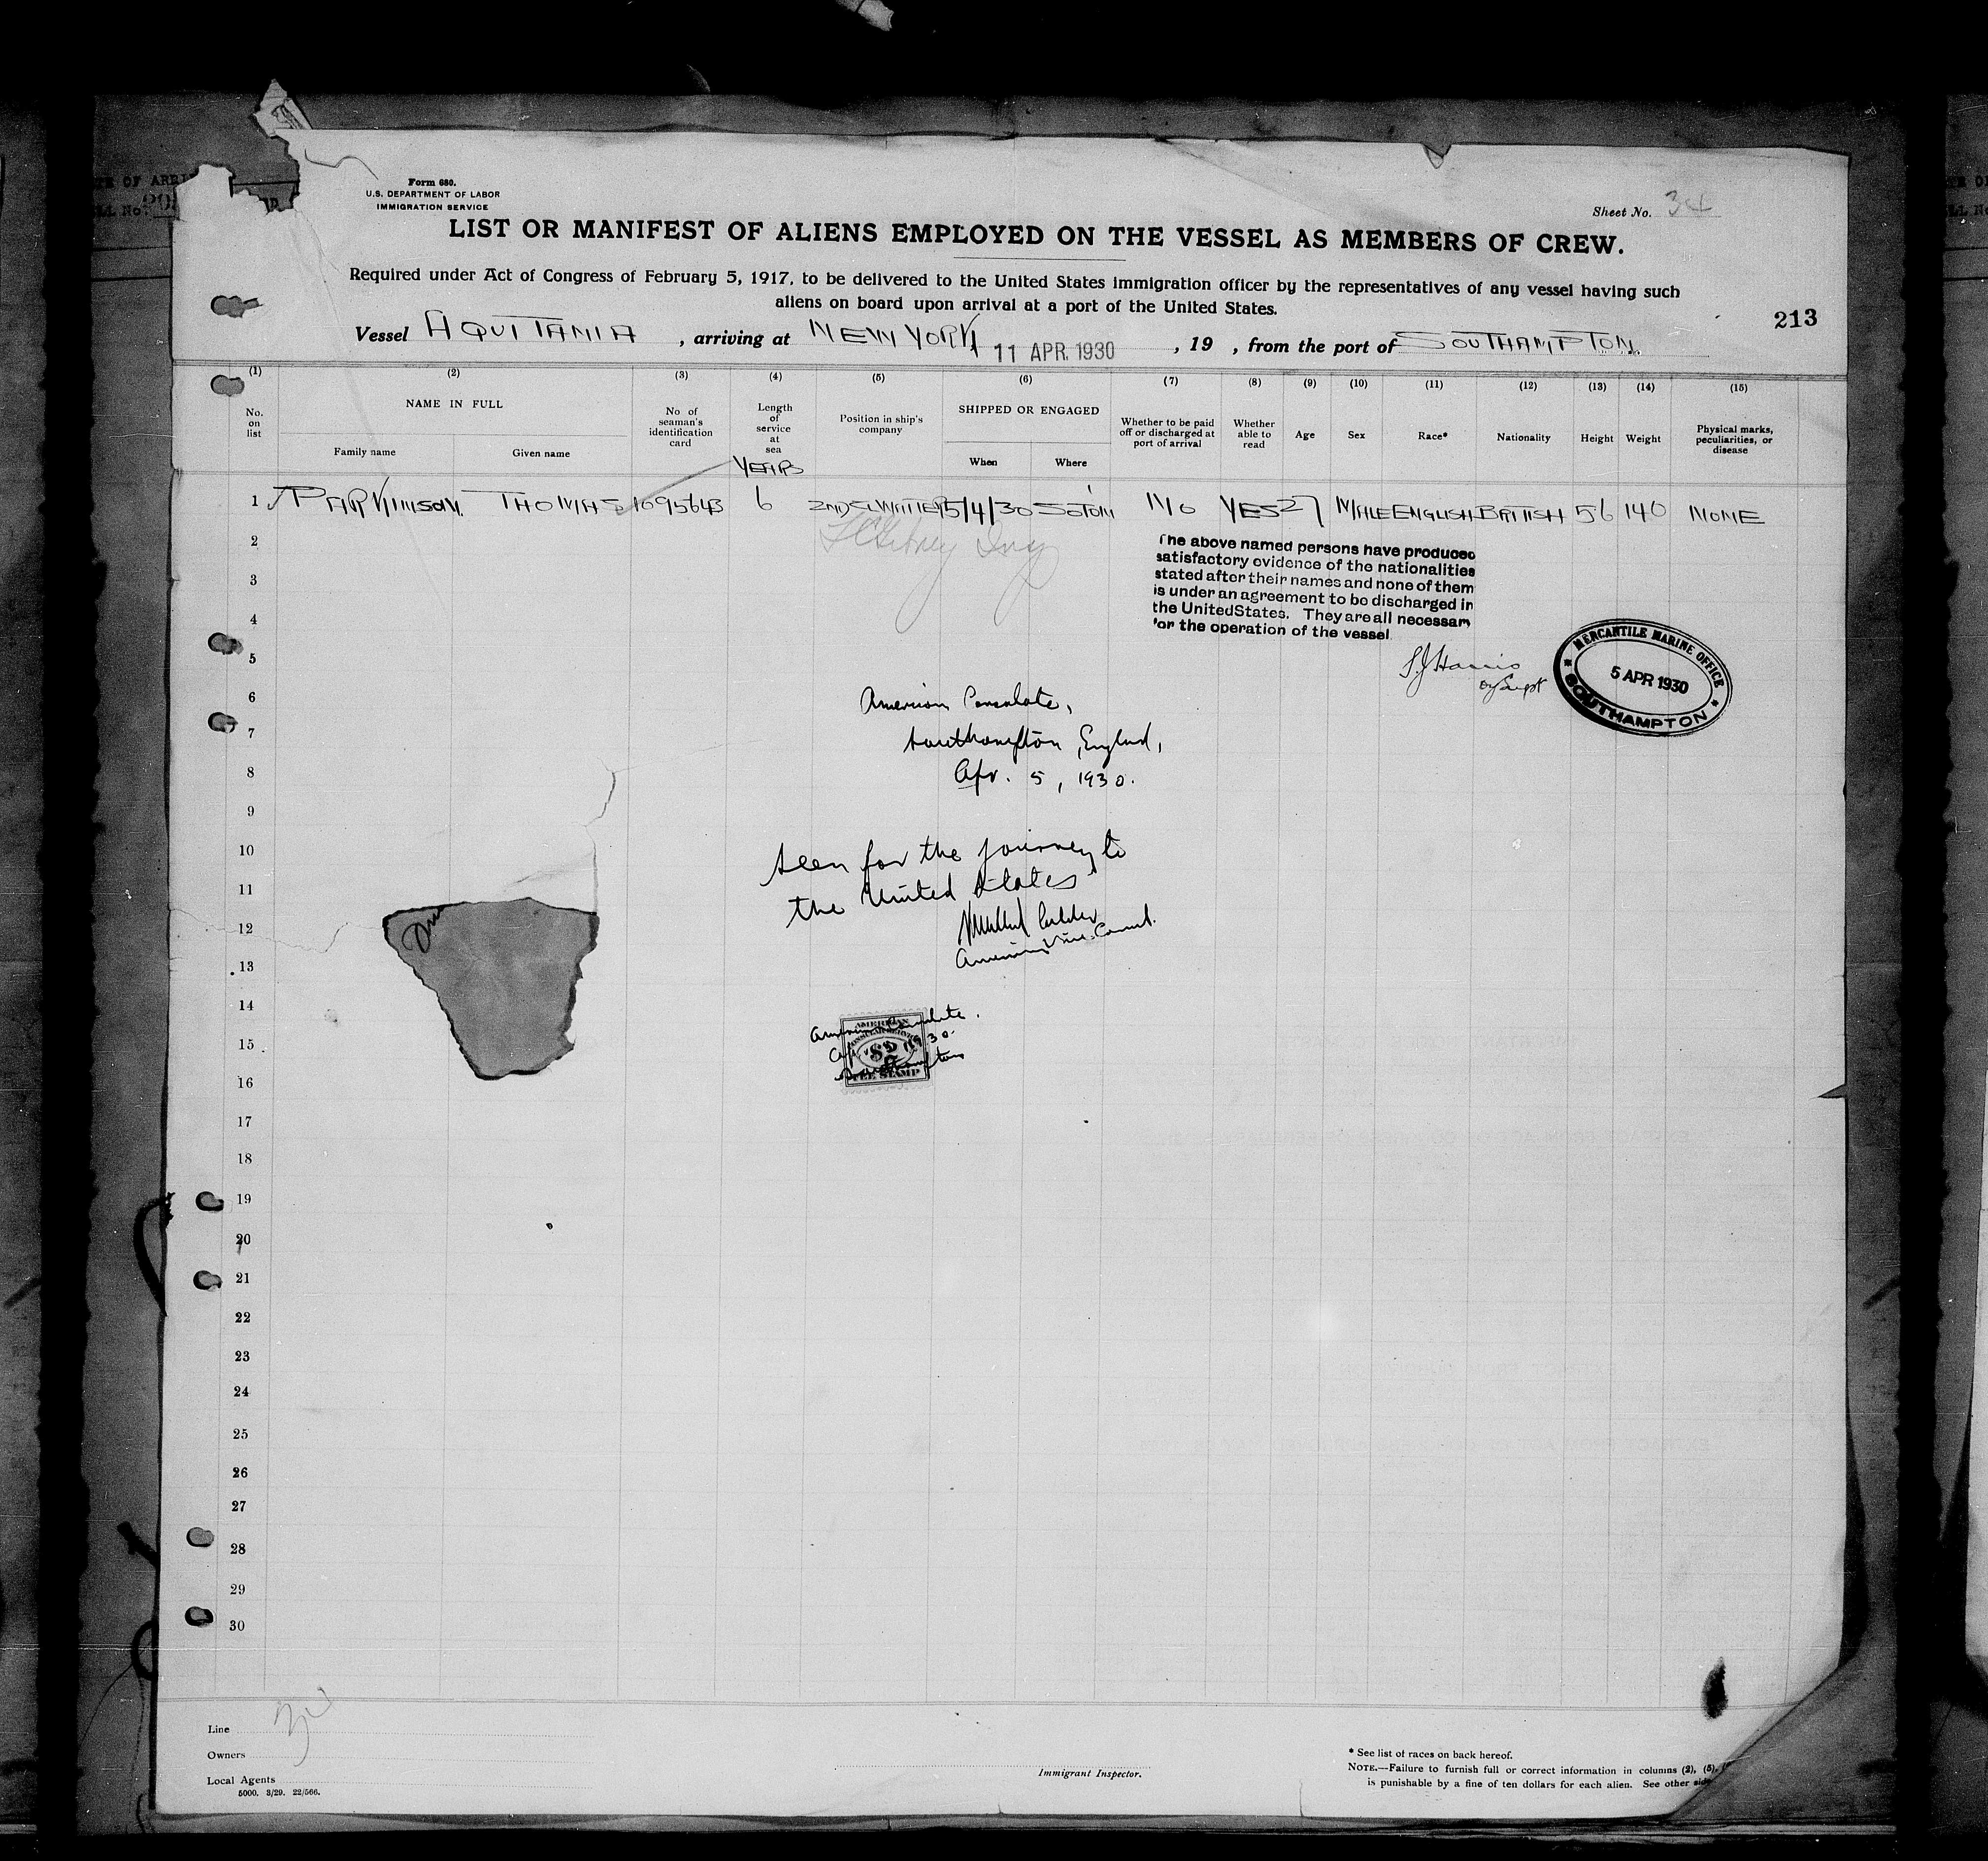 Form 680.
U.S. DEPARTMENT OF LABOR
IMMIGRATION SERVICE
Sheet No. 34
LIST OR MANIFEST OF ALIENS EMPLOYED ON THE VESSEL AS MEMBERS OF CREW.
Required under Act of Congress of February 5, 1917, to be delivered to the United States immigration officer by the representatives of any vessel having such
aliens on board upon arrival at a port of the United States.
213
Vessel AQUITANIA , arriving at NEW YORK 11 APR. 1930 , 19 , from the port of SOUTHAMPTON.
(1) (2) (3) (4) (5) (6) (7) (8) (9) (10) (11) (12) (13) (14) (15)
No. on list
NAME IN FULL
Family name
Given name
No. of seaman's identification card
Length of service at sea
YEARS
Position in ship's company
SHIPPED OR ENGAGED
When
Where
Whether to be paid off or discharged at port of arrival
Whether able to read
Age
Sex
Race*
Nationality
Height
Weight
Physical marks, peculiarities, or disease
1 PARKINSON. THOMAS 1095643 6 2ND 5/4/30 SOTON NO YES 27 MALE ENGLISH BRITISH 56 140 NONE
2
3
4
5
6
7
8
9
10
11
12
13
14
15
16
17
18
19
20
21
22
23
24
25
26
27
28
29
30
The above named persons have produced
satisfactory evidence of the nationalities
stated after their names and none of them
is under an agreement to be discharged in
the United States. They are all necessary
for the operation of the vessel
MERCANTILE MARINE OFFICE
5 APR 1930
SOUTHAMPTON
American Consulate,
Southampton, England,
Apr. 5, 1930.
Seen for the journey to
the United States
American Vice Consul.
American Consulate.
AMERICAN
CONSULAR SERVICE
$2
FEE STAMP
Southampton
Line
Owners
Local Agents
5000. 3/29. 22/566.
Immigrant Inspector.
* See list of races on back hereof.
NOTE.—Failure to furnish full or correct information in columns (2), (5),
is punishable by a fine of ten dollars for each alien. See other side